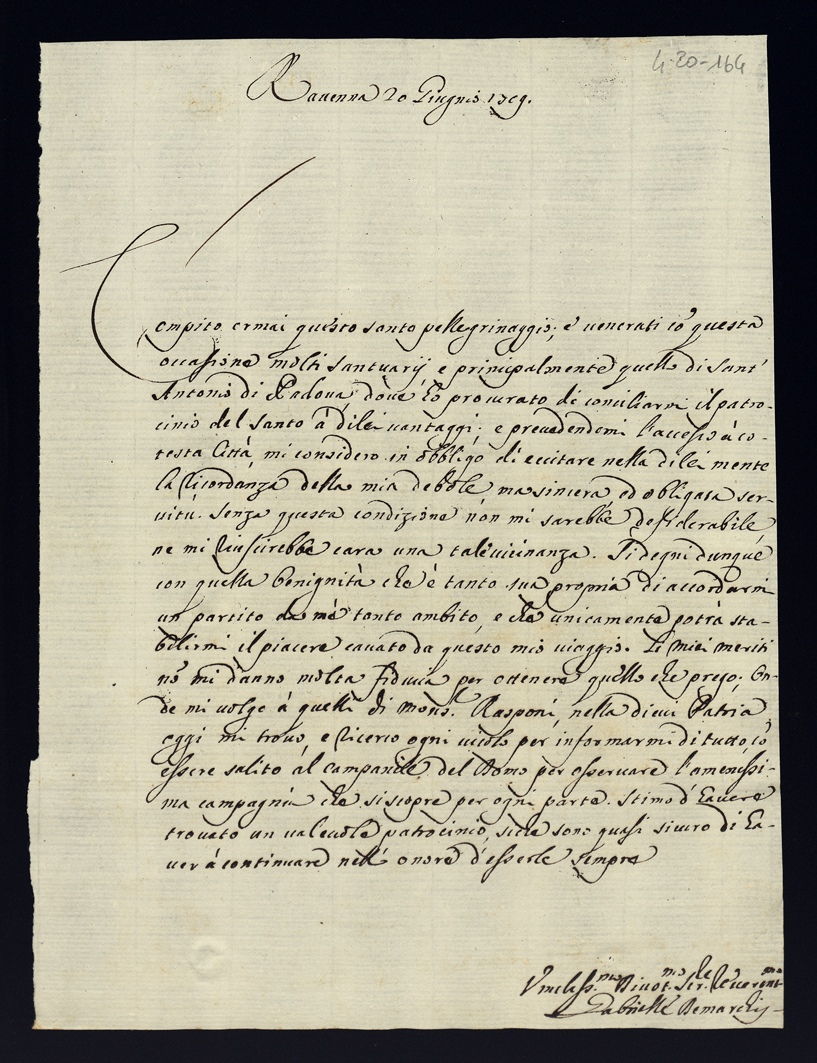 4-20-164
Ravenna 20 Giugno 1709.
Compito ormai questo santo pellegrinaggio; e venerati cõ questa
occassione molti santuarij e principalmente quello di Sant'
Antonio di Padova, dove hò procurato di conciliarmi il patro-
cinio del Santo à di lei vantaggi; e prevedendomi l'accesso à co-
testa Città, mi considero in obbligo di eccitare nella di lei mente
la Ricordanza della mia debole, ma sincera, ed obligata ser-
vitù. Senza questa condizione non mi sarebbe desiderabile
ne mi Riuscirebbe cara una tal vicinanza. Si degni dunque
con quella benignità che è tanto sua propria di accordarmi
un partito da mè tanto ambito, e che unicamente potrà sta-
bilirmi il piacere cavato da questo mio viaggio. Li miei meriti
nõ mi danno molta fiducia per ottenere quello che prego; On-
de mi volgo à quelli di Mons.r Rasponi, nella di cui Patria
oggi mi trovo, e Ricerco ogni vicolo per informarmi di tutto, cõ
essere salito al campanile del Domo per osservare l'amenissi-
ma campagnia che si scopre per ogni parte. Stimo d'havere
trovato un valevole patrocinio, siche sono quasi sicuro di ha-
ver à continuare nell'onore d'esserle sempre
Vmiliss.mo Divot.mo Ser.re Reverent.mo
Gabrielle Demarchij